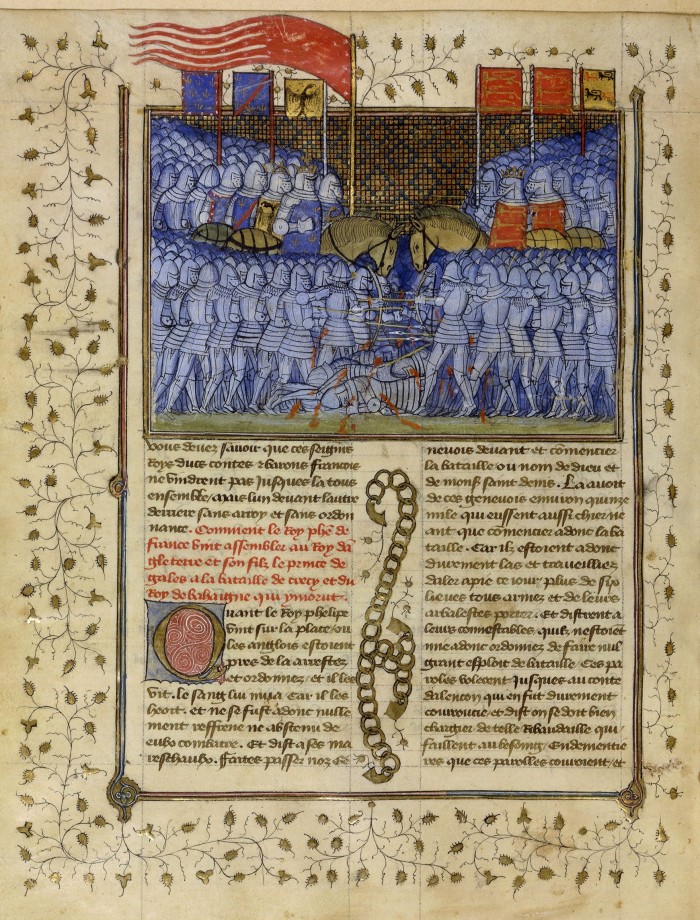 vous devez savoir que ces seigns
Roys ducs contes & barons francois
ne vindrent pas Jusques la tous
ensemble/ mais lun devant lautre
derriere sans arroy et sans ordon
nance. Comment le Roy phe de
france vint assembler au Roy dā
gleterre et son filz le prince de
gales a la bataille de crecy et du
Roy de bahaigne qui y morut.
Quant le Roy phelipe
vint sur la place/ ou
les anglois estoient
pres de la arrestez
et ordonnez/ et il les
vit. le sang lui mua Car il les
heoit. et ne se fust adonc nulle
ment reffrene ne abstenu de
eulx combatre. Et dist a ses ma
reschaux. faites passer noz Ge
nevois devant et comencier
la bataille ou nom de dieu et
de mons saint denis. La avoit
de ces genevois environ quinze
mile qui eussent aussi chier ne
ant que comencier adonc la ba
taille. Car ilz estoient adonc
durement las et traveilliez
daler a pie ce jour plus de six
lieues tous armez et de leurs
arbalestes porter. Et distrent a
leurs connestables. quilz nestoiēt
mie adonc ordonnez de faire nul
grant esploit de bataille Ces pa
roles volerent Jusques au conte
dalencon qui en fut durement
courroucie et dist on se doit bien
chargier de telle Ribaudaille qui
faillent au besoing/ Endementie
res que ces parolles couroient/ et